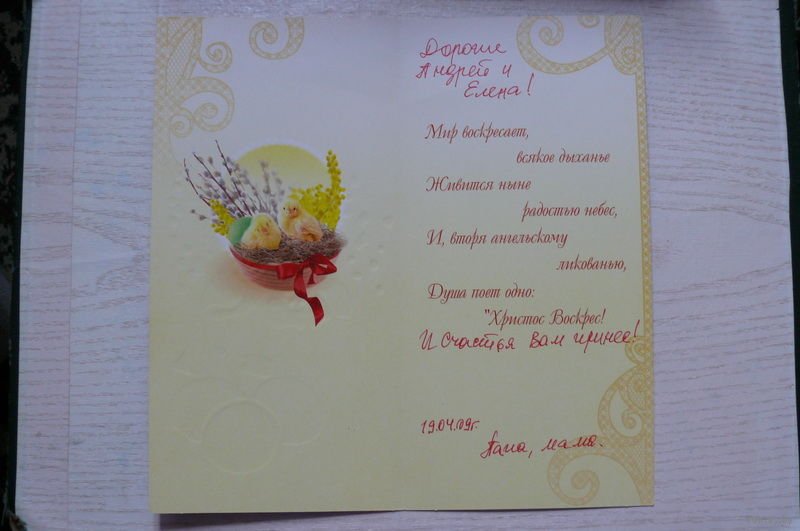 Дорогие
Андрей и
Елена!
Мир воскресает,
всякое дыханье
Живится ныне
радостью небес,
И, вторя ангельскому
ликованью,
Душа поет одно:
"Христос Воскрес!
И счастья Вам принес!
19.04.09г.
Папа, мама.